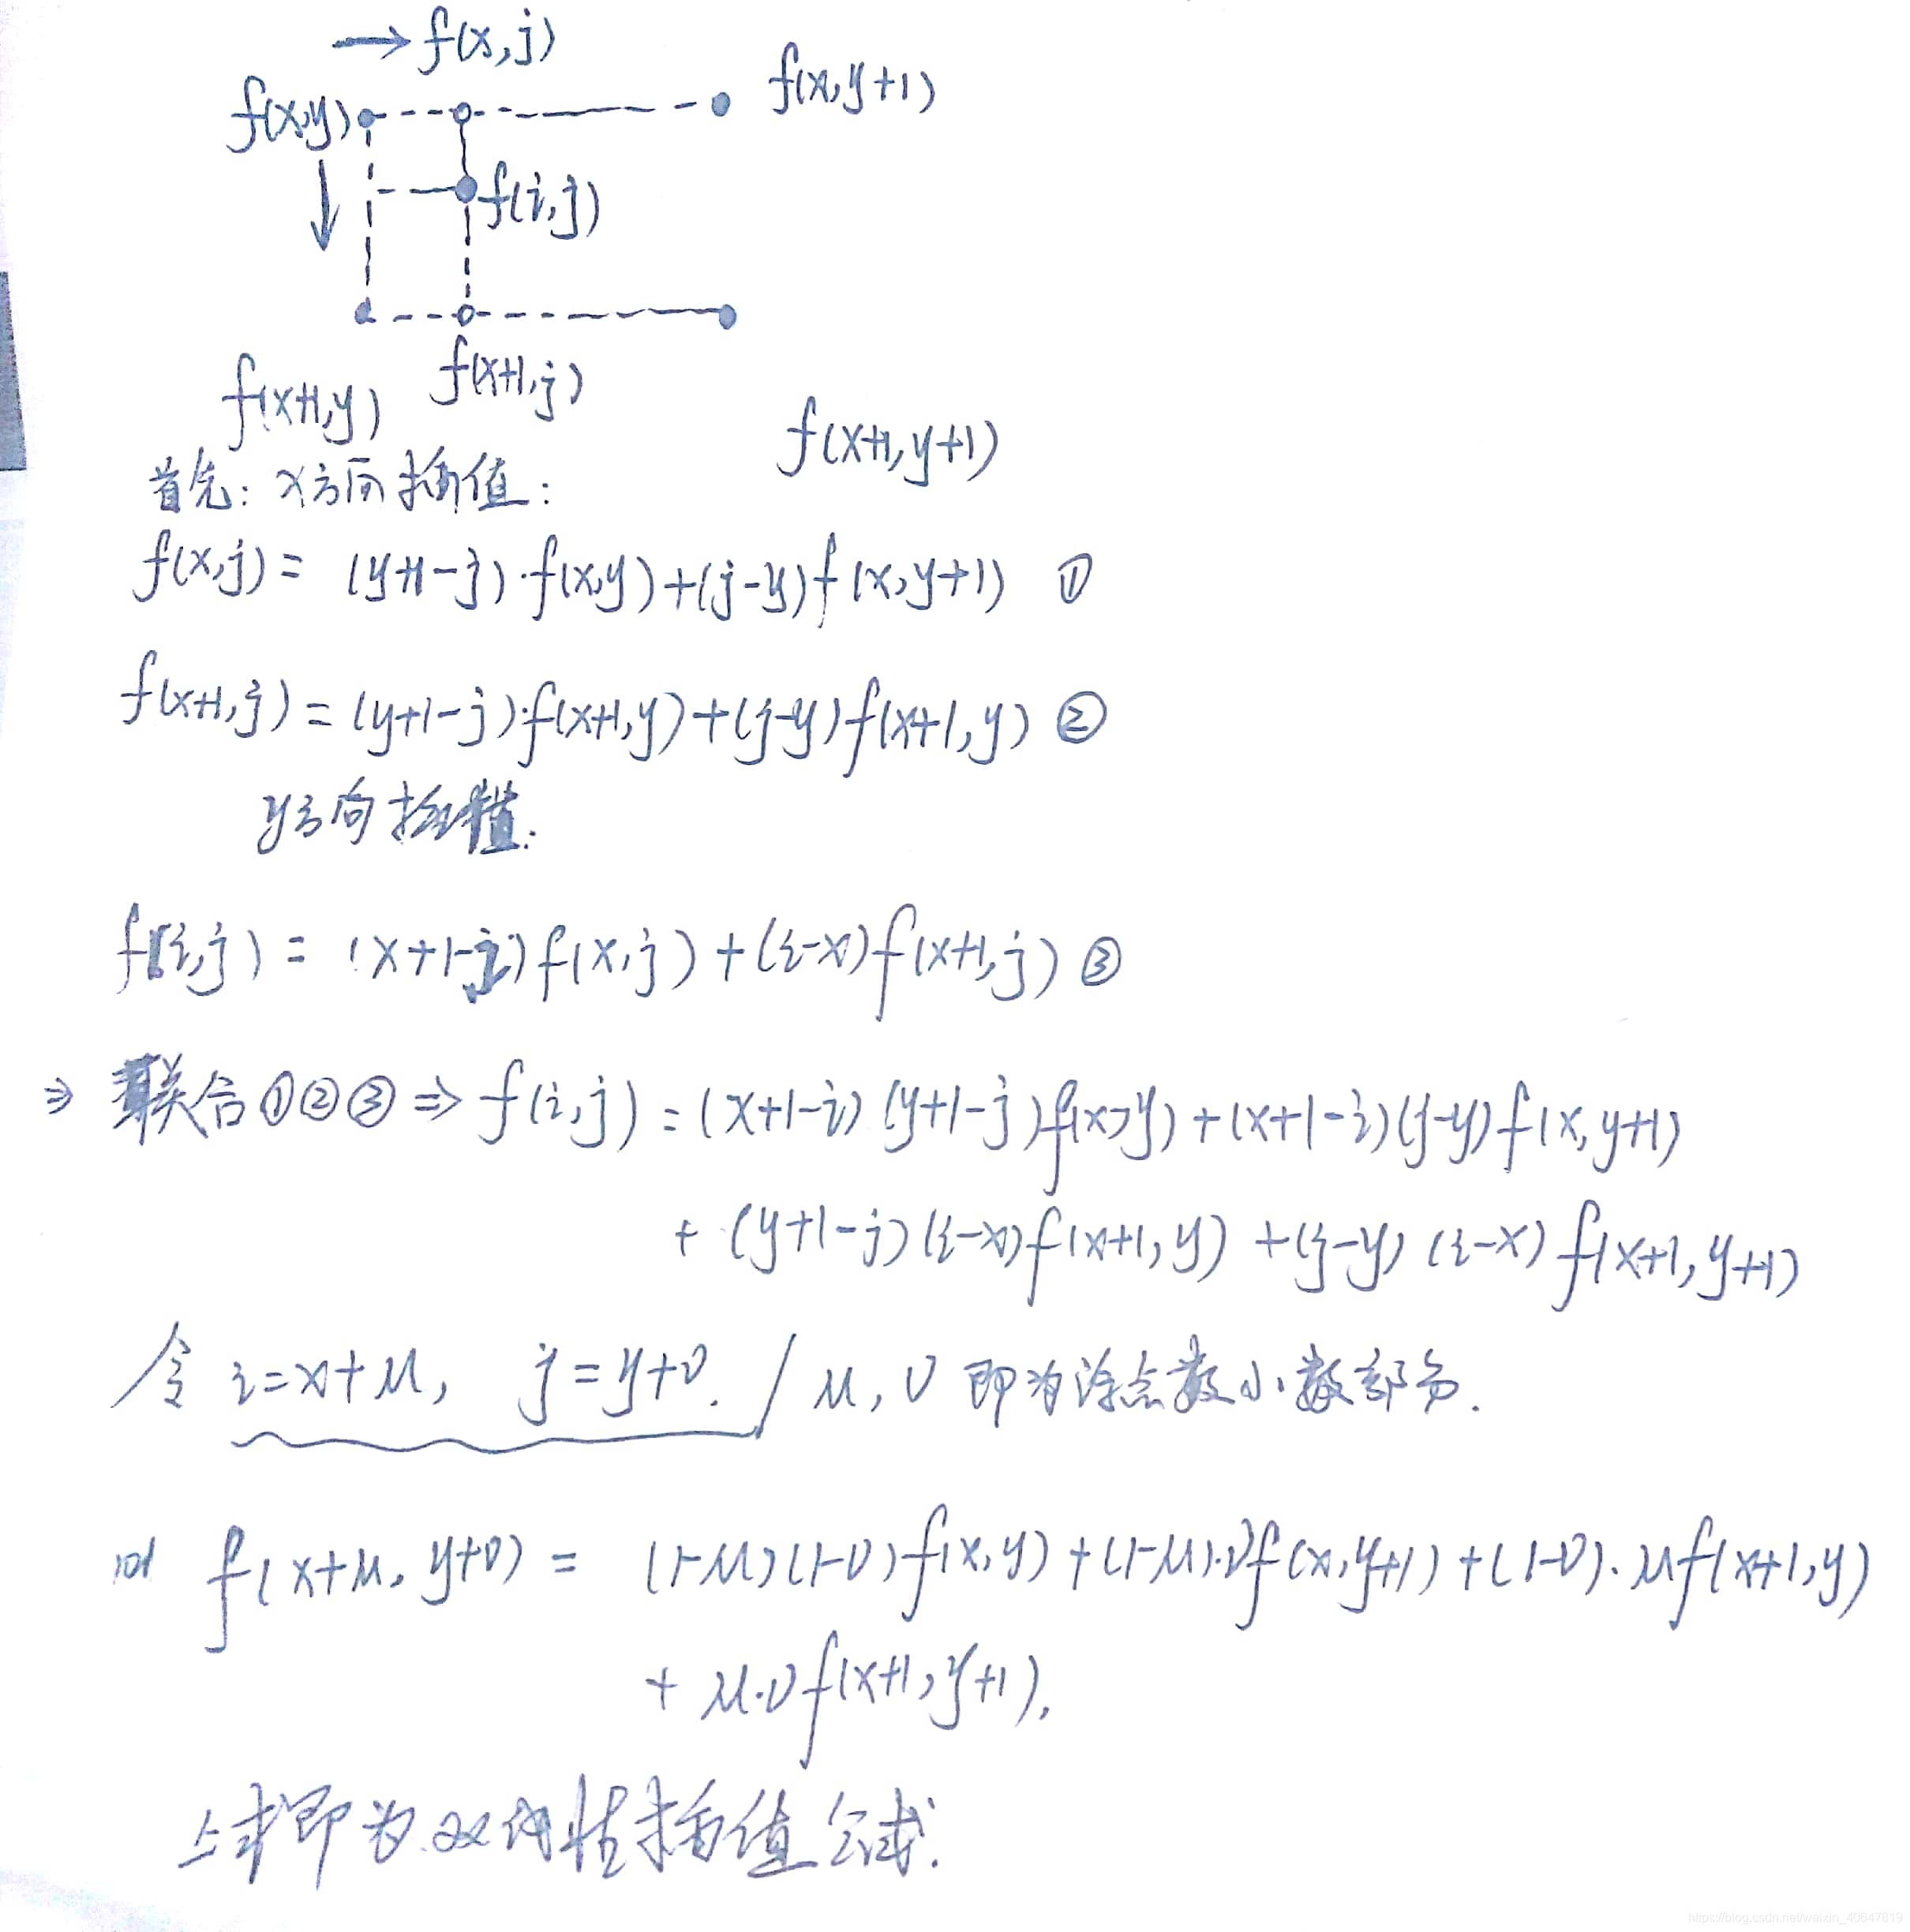 → f(x,j)
f(x,y) f(x,y+1)
f(i,j)
f(x+1,y) f(x+1,j) f(x+1,y+1)
首先: x方向插值:
f(x,j) = (y+1-j)·f(x,y)+(j-y)f(x,y+1) ①
f(x+1,j) = (y+1-j)·f(x+1,y)+(j-y)f(x+1,y) ②
y方向插值:
f(i,j) = (x+1-i)f(x,j)+(i-x)f(x+1,j) ③
⇒ 联合①②③ ⇒ f(i,j) = (x+1-i)(y+1-j)f(x,y)+(x+1-i)(j-y)f(x,y+1)
+ (y+1-j)(i-x)f(x+1,y) +(j-y)(i-x)f(x+1,y+1)
令 i=x+μ, j=y+υ. / μ,υ 即为浮点数小数部分.
则 f(x+μ, y+υ) = (1-μ)(1-υ)f(x,y)+(1-μ)·υf(x,y+1)+(1-υ)·μf(x+1,y)
+ μ·υf(x+1,y+1),
上式即为双线性插值公式.
https://blog.csdn.net/weixin_40647819